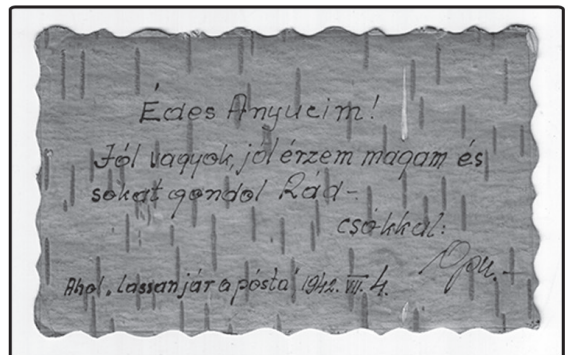 Édes Anyucim!
Jól vagyok, jól érzem magam és
sokat gondol Rád-
csókkal:
Apu.-
Ahol "lassan jár a pósta" 1942. VII. 4.